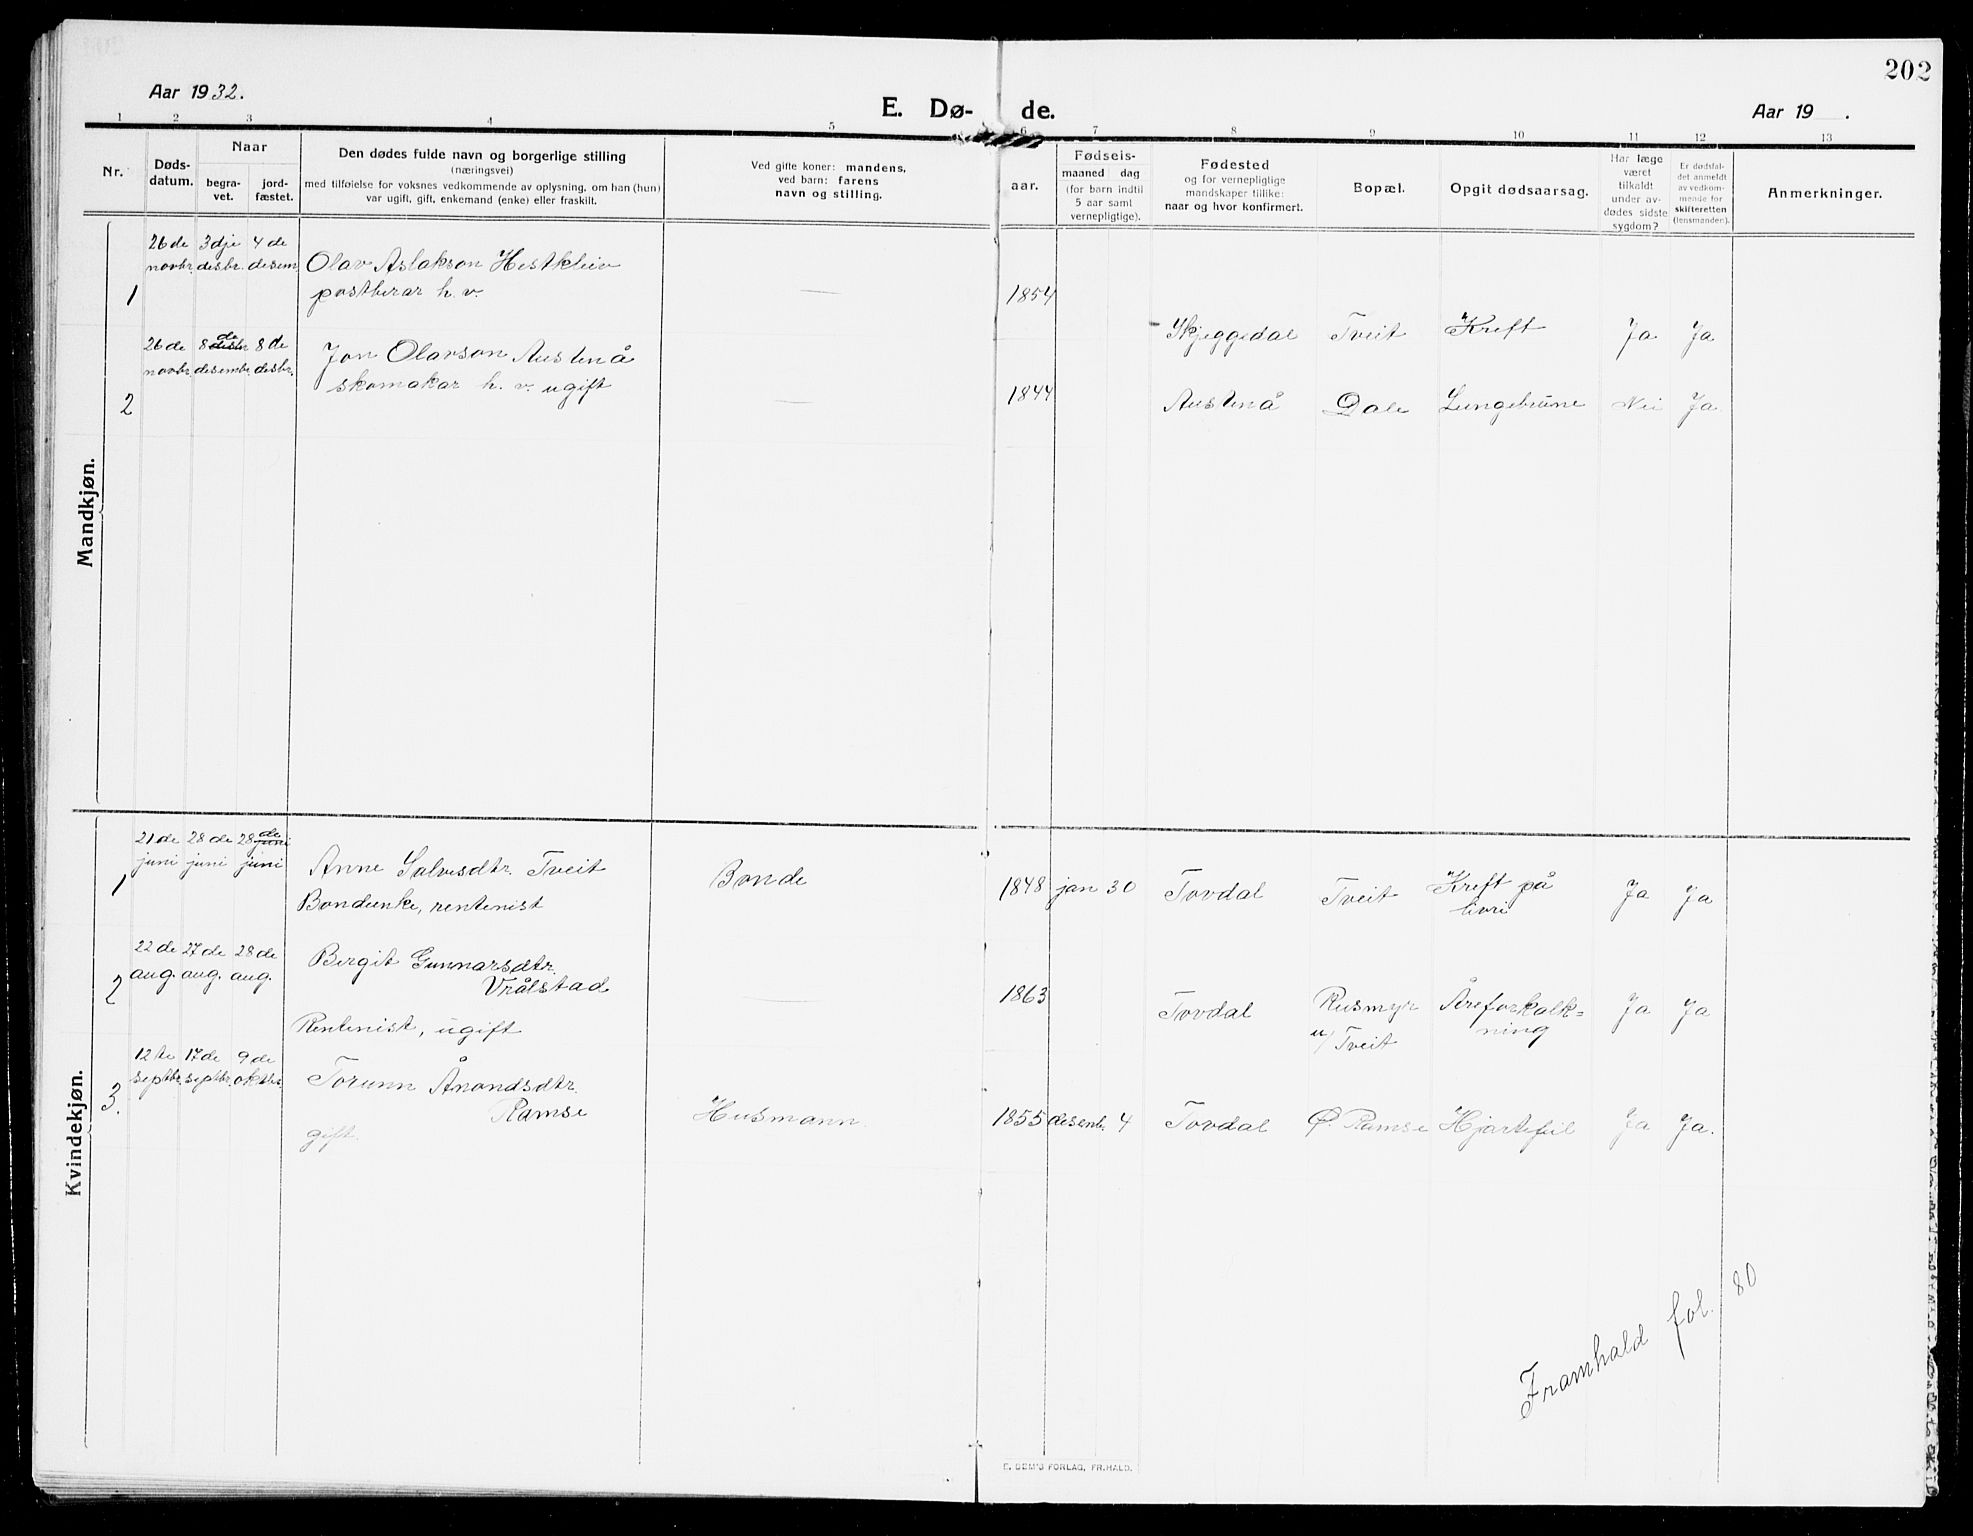 202
Aar 1932.
E. Dø- de.
Aar 19 .
1 2 3 4 5 6 7 8 9 10 11 12 13
Nr.
Døds-
datum.
Naar
begra-
vet.
jord-
fæstet.
Den dødes fulde navn og borgerlige stilling
(næringsvei)
med tilføielse for voksnes vedkommende av oplysning, om han (hun)
var ugift, gift, enkemand (enke) eller fraskilt.
Ved gifte koner: mandens,
ved barn: farens
navn og stilling.
aar.
Fødsels-
maaned dag
(for børn indtil
5 aar samt
vernepligtige).
Fødested
og for vernepligtige
mandskaper tillike:
naar og hvor konfirmert.
Bopæl.
Opgit dødsaarsag.
Har læge
været
tilkaldt
under av-
dødes sidste
sygdom?
Er dødsfal-
det anmeldt
av vedkom-
mende for
skifteretten
(lensmanden).
Anmerkninger.
Mandkjøn.
1
26de
novbr.
3dje
desbr.
4de
desem
Olav Aslakson Hestkleiv
postberar h. v.
—
1854
Skjeggedal
Tveit
Kreft
Ja
Ja
2
26de
novbr.
8de
desembr.
8de
desbr.
Jon Olavson Austenå
skomakar h. v. ugift
—
1844
Austenå
Dale
Lungebrune
Nei
Ja
Kvindekjøn.
1
21de
juni
28de
juni
28de
juni
Anne Salvesdtr. Tveit
Bondeenke, rentenist
Bonde
1848 jan 30
Tovdal
Tveit
Kreft på
livri
Ja
Ja
2
22de
aug.
27de
aug.
28de
aug.
Birgit Gunnarsdtr.
Vrålstad
Rentenist, ugift
—
1863
Tovdal
Rusmyr
u/ Tveit
Åreforkalk=
ning
Ja
Ja
3.
12te
septbr.
17de
septbr.
9de
oktbr.
Torunn Ånondsdtr.
Ramse
gift.
Husmann.
1855 desemb. 4
Tovdal
Ø. Ramse
Hjartefeil
Ja
Ja.
Framhald fol. 80
E. SEM'S FORLAG, FR.HALD.